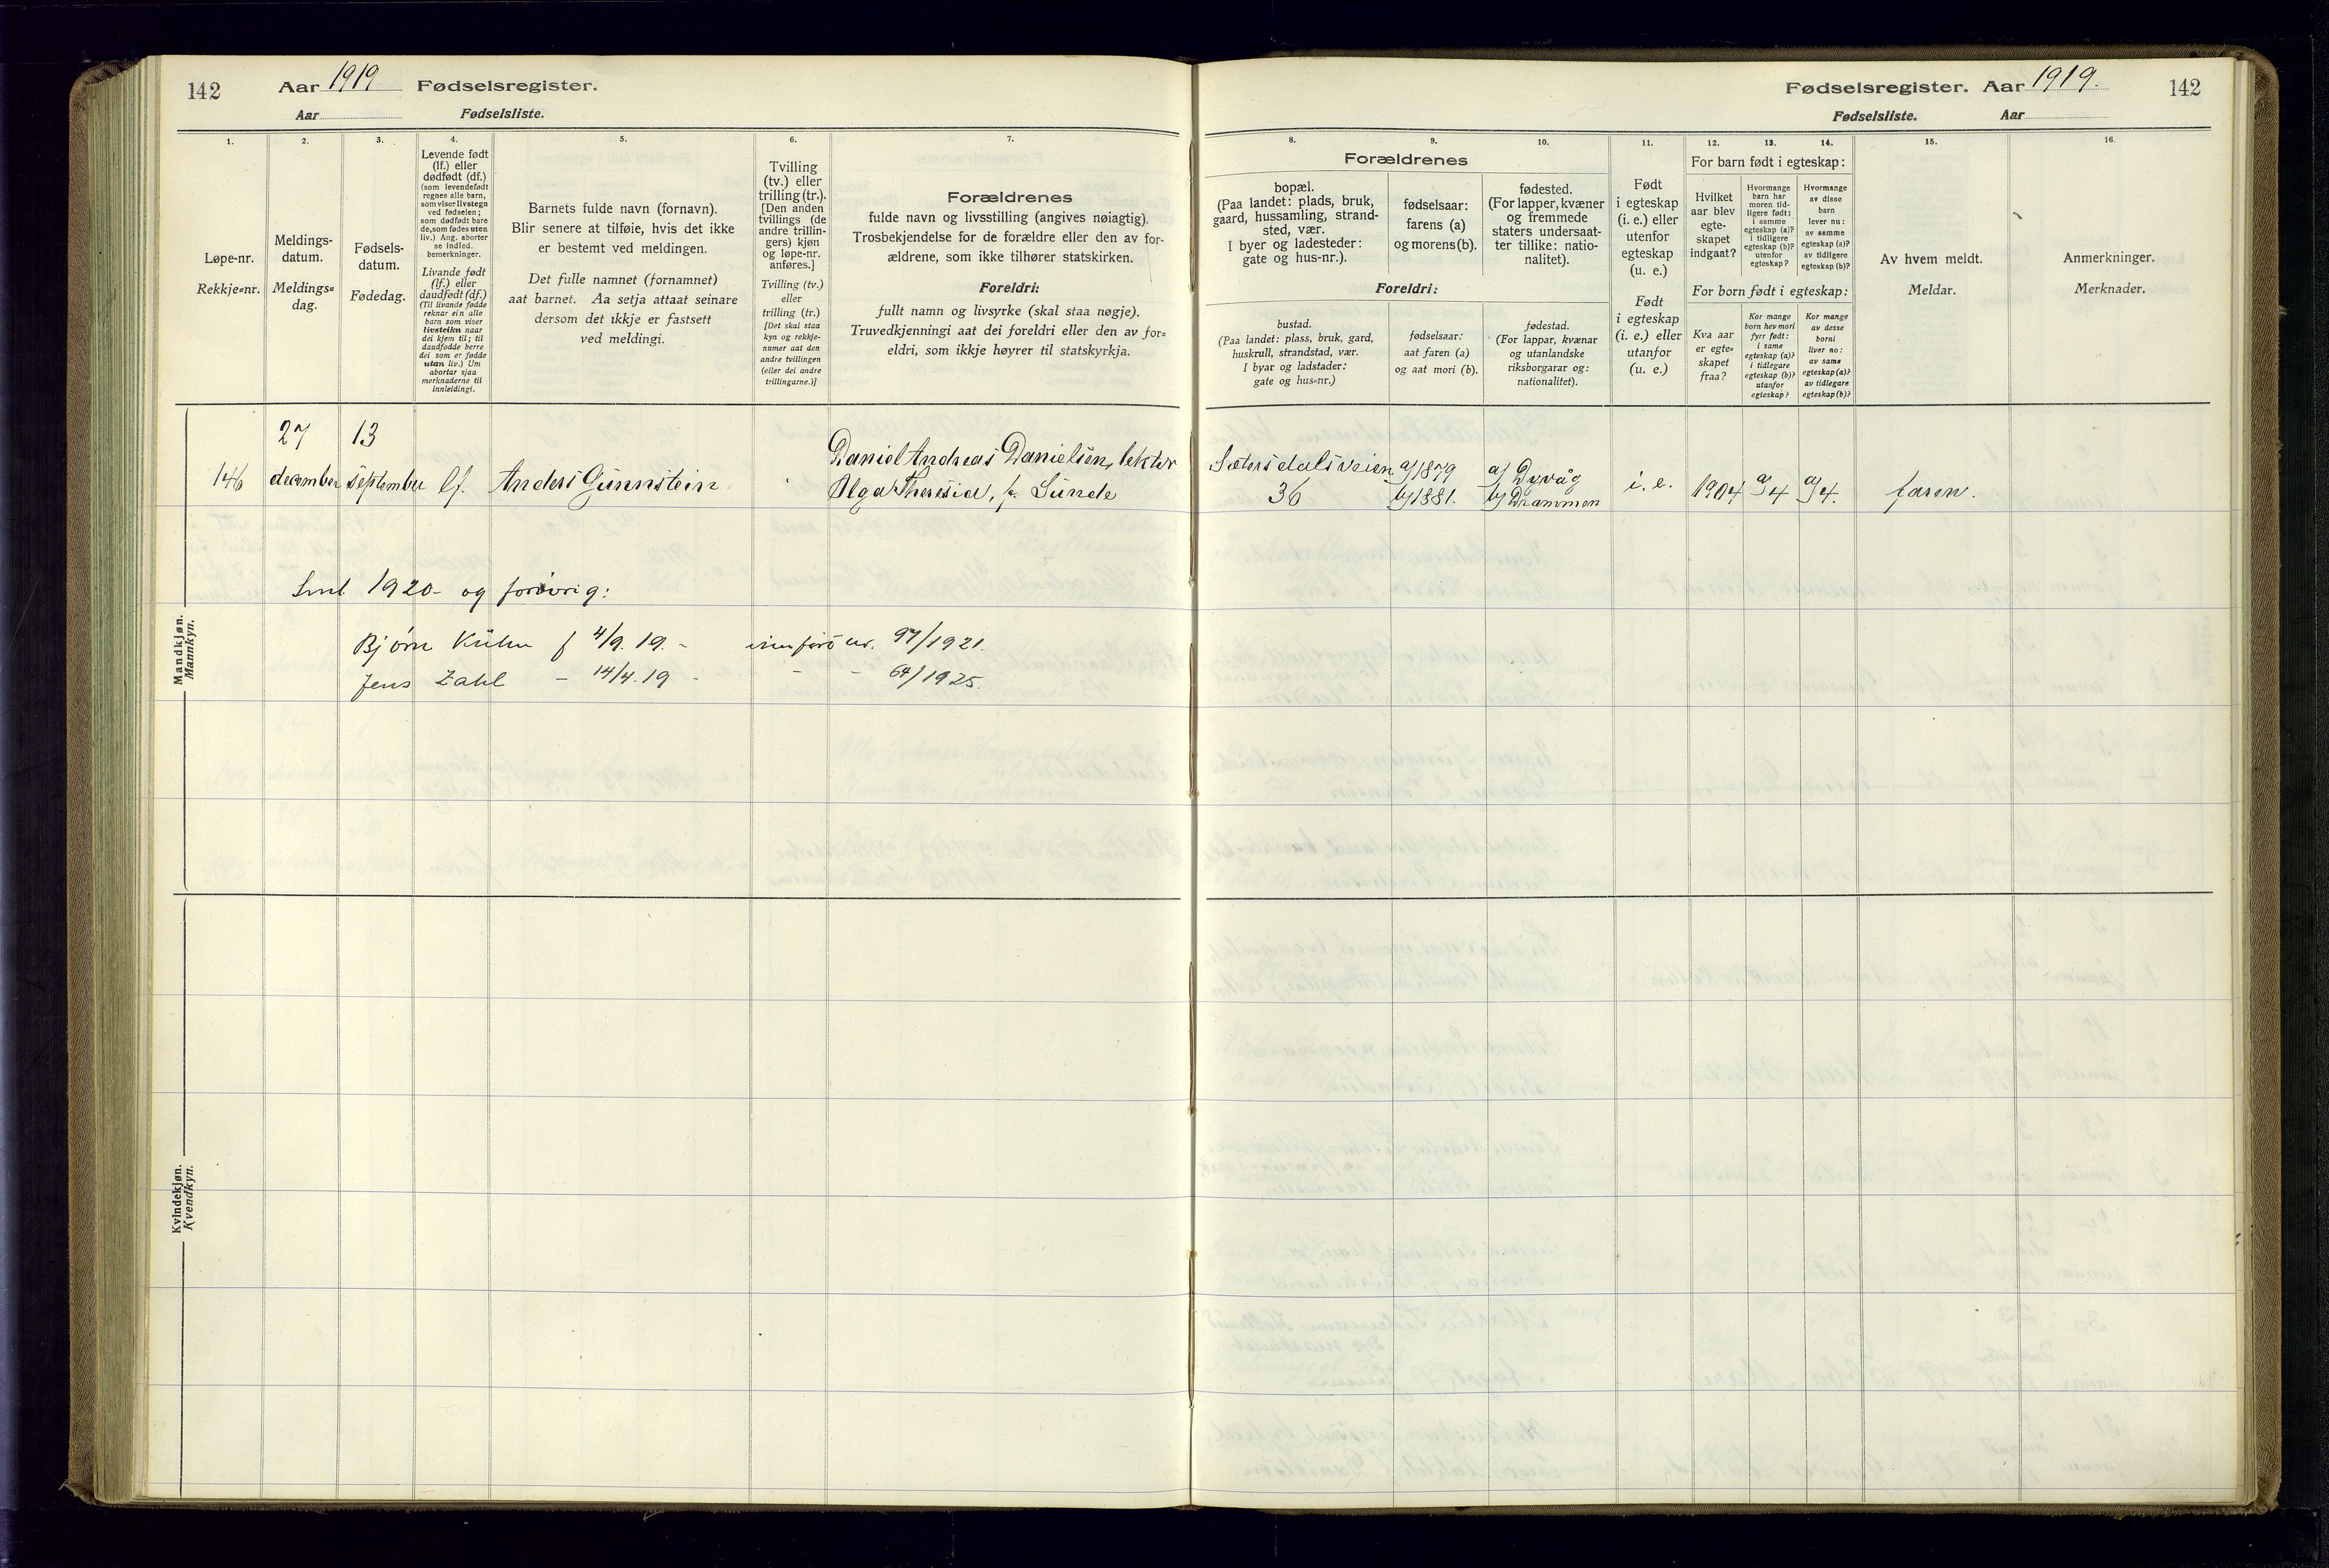 142
Aar 1919 Fødselsregister.
Aar Fødselsliste.
1.
Løpe-nr.
Rekkje=nr.
2.
Meldings-
datum.
Meldings=
dag.
3.
Fødsels-
datum.
Fødedag.
4.
Levende født
(lf.) eller
dødfødt (df.)
(som levendefødt
regnes alle barn,
som viser livstegn
ved fødselen;
som dødfødt bare
de, som fødes uten
liv.) Ang. aborter
se indled.
bemerkninger.
Livande født
(lf.) eller
daudfødt (df.)
(Til livande fødde
reknar ein alle
barn som viser
livsteikn naar
dei kjem til; til
daudfødde berre
dei som er fødde
utan liv.) Um
abortar sjaa
merknaderne til
innleidingi.
5.
Barnets fulde navn (fornavn).
Blir senere at tilføie, hvis det ikke
er bestemt ved meldingen.
Det fulle namnet (fornamnet)
aat barnet. Aa setja attaat seinare
dersom det ikkje er fastsett
ved meldingi.
6.
Tvilling
(tv.) eller
trilling (tr.).
[Den anden
tvillings (de
andre trillin-
gers) kjøn
og løpe-nr.
anføres.]
Tvilling (tv.)
eller
trilling (tr.)
[Det skal staa
kyn og rekkje-
numer aat den
andre tvillingen
(eller dei andre
trillingarne.)]
7.
Forældrenes
fulde navn og livsstilling (angives nøiagtig).
Trosbekjendelse for de forældre eller den av for-
ældrene, som ikke tilhører statskirken.
Foreldri:
fullt namn og livsyrke (skal staa nøgje).
Truvedkjenningi aat dei foreldri eller den av for=
eldri, som ikkje høyrer til statskyrkja.
Mandkjøn.
Mannkyn.
27 13
146 december september lf. Anders Gunnstein
Daniel Andreas Danielsen, lektor
Olga Theresia, f. Sunde
Sml 1920 - og forøvrig:
Bjørn Kühn f 4/9. 19. - innført nr. 97/1921.
Jens Zahl - 14/4. 19 - - - 64/1925.
Kvindekjøn.
Kvendkyn.
Fødselsregister. Aar 1919. 142
Fødselsliste. Aar
8.
Forældrenes
bopæl.
(Paa landet: plads, bruk,
gaard, hussamling, strand-
sted, vær.
I byer og ladesteder:
gate og hus-nr.).
Foreldri:
bustad.
(Paa landet: plass, bruk, gard,
huskrull, strandstad, vær.
I byar og ladstader:
gate og hus=nr.)
9.
fødselsaar:
farens (a)
og morens (b).
fødselsaar:
aat faren (a)
og aat mori (b).
10.
fødested.
(For lapper, kvæner
og fremmede
staters undersaat-
ter tillike: natio-
nalitet).
fødestad.
(For lappar, kvænar
og utanlandske
riksborgarar og:
nationalitet).
11.
Født
i egteskap
(i. e.) eller
utenfor
egteskap
(u. e.)
Født
i egteskap
(i. e.) eller
utanfor
(u. e.)
12. 13. 14.
For barn født i egteskap:
Hvilket
aar blev
egte-
skapet
indgaat?
Hvormange
barn har
moren tid-
ligere født:
i samme
egteskap (a)?
i tidligere
egteskap (b)?
utenfor
egteskap?
Hvormange
av disse
barn
lever nu:
av samme
egteskap (a)?
av tidligere
egteskap (b)?
For born født i egteskap:
Kva aar
er egte=
skapet
fraa?
Kor mange
born hev mori
fyrr født:
i same
egteskap (a)?
i tidlegare
egteskap (b)?
utanfor
egteskap?
Kor mange
av desse
borni
liver no:
av same
egteskap (a)?
av tidlegare
egteskap (b)?
15.
Av hvem meldt.
Meldar.
16.
Anmerkninger.
Merknader.
Sætersdalsveien a/1879 a/ Dyvåg
36 b/1881. b/ Drammen i. e. 1904 a/4 a/4. faren.